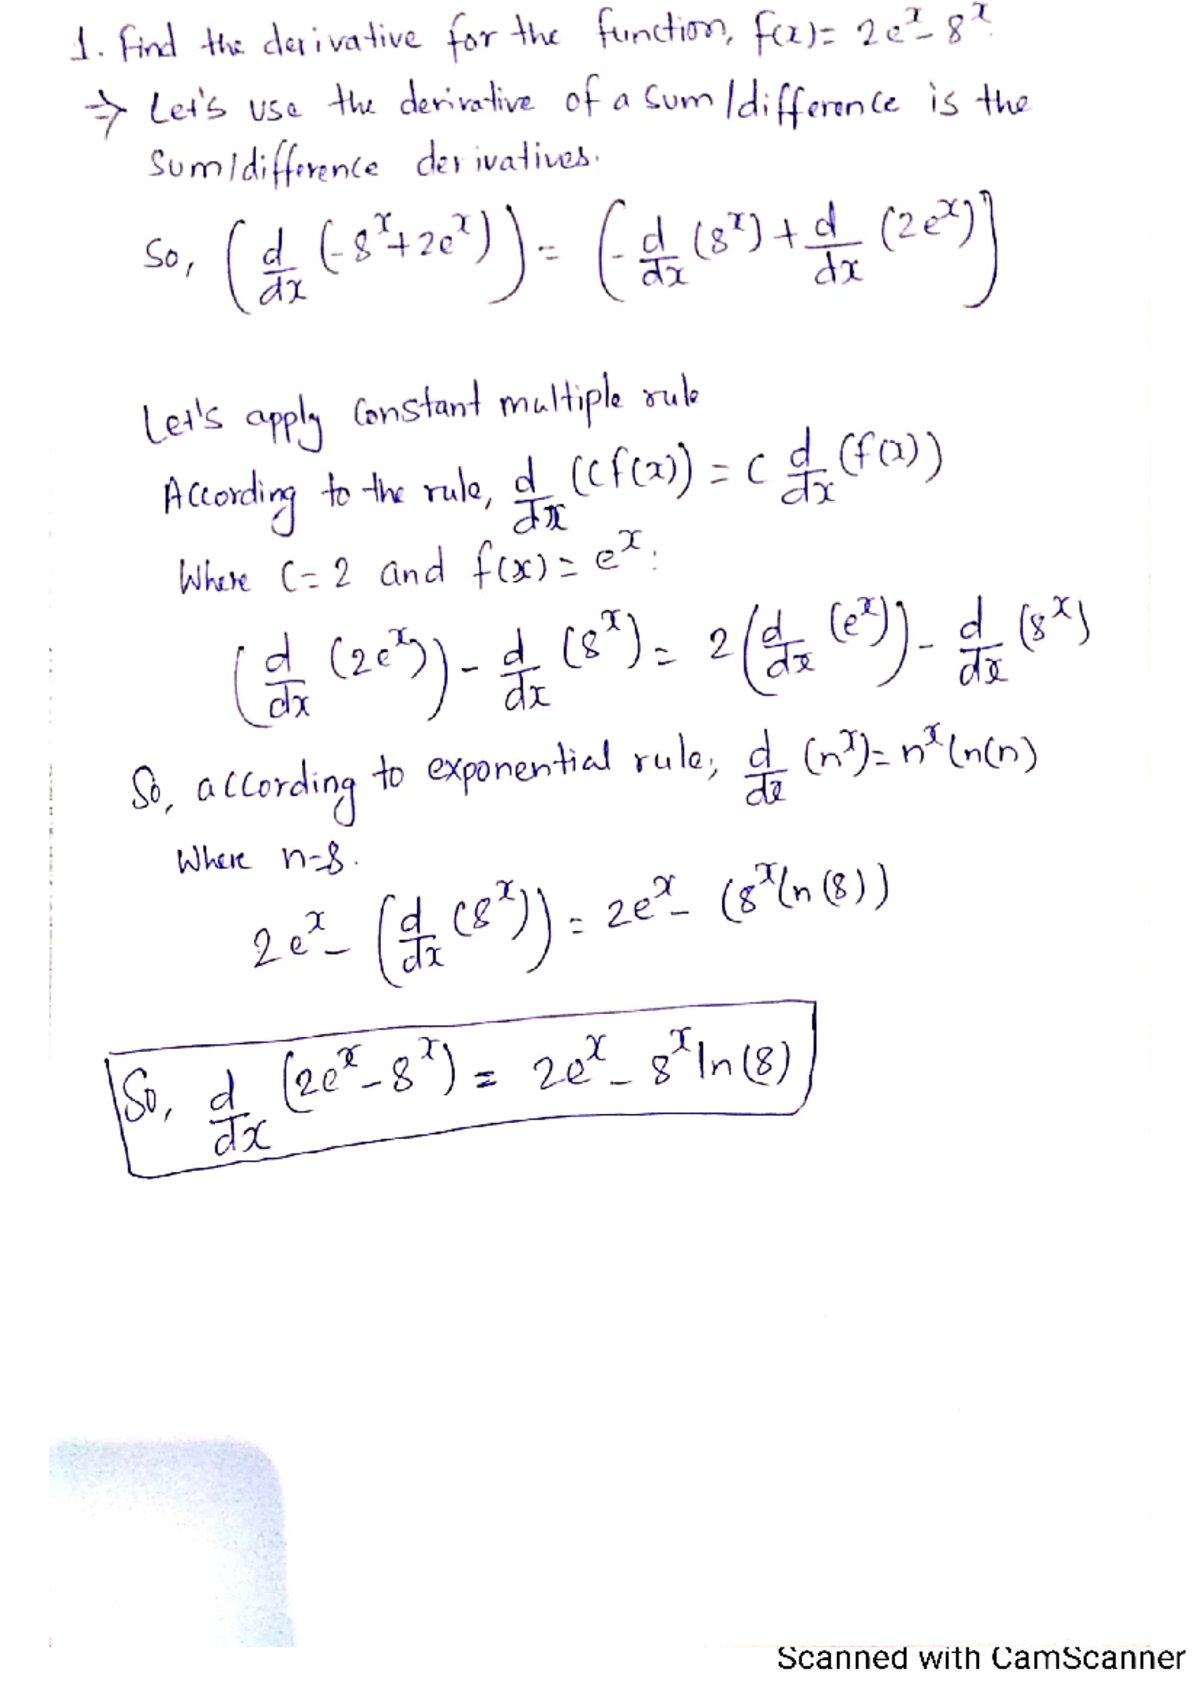 1. Find the derivative for the function, f(x)= 2e^x - 8^x.
→ Let's use the derivative of a sum/difference is the
sum/difference derivatives.
So, (d/dx (-8^x+2e^x)) = (-d/dx (8^x) + d/dx (2e^x))
Let's apply Constant multiple rule
According to the rule, d/dx (Cf(x)) = C d/dx (f(x))
Where C=2 and f(x)= e^x.
(d/dx (2e^x)) - d/dx (8^x) = 2(d/dx (e^x)) - d/dx (8^x)
So, according to exponential rule, d/dx (n^x)= n^x ln(n)
Where n=8.
2e^x - (d/dx (8^x)) = 2e^x - (8^x ln(8))
So, d/dx (2e^x - 8^x) = 2e^x - 8^x ln(8)
Scanned with CamScanner